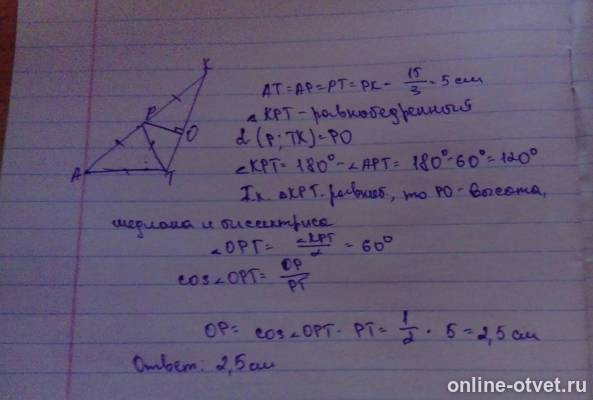 K
P
O
A
T
AT = AP = PT = PK = 15/3 = 5 см
△ KPT - равнобедренный
d (P; TK) = PO
∠KPT = 180° - ∠APT = 180° - 60° = 120°
Т.к. △KPT - равноб., то PO - высота,
медиана и биссектриса
∠OPT = ∠KPT/2 = 60°
cos∠OPT = OP/PT
OP = cos∠OPT · PT = 1/2 · 5 = 2,5 см
Ответ: 2,5 см
online-otvet.ru